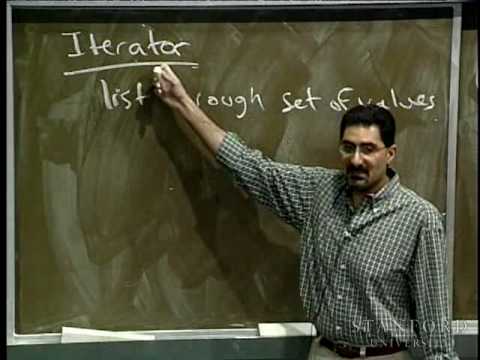 Iterator
list through set of values
STANFORD
UNIVERSITY